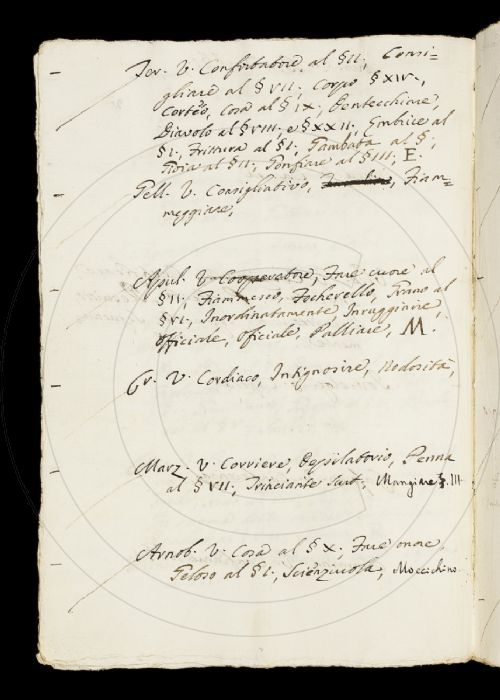 Ter. V. Confortatore al § II, Consi=
gliare al § VII; Corpo § XIV.,
Cosa al § IX,
Diavolo al § VIII. e § XXII, Embrice al
§ I., Frittura al § I., Gambata al §,
al § II., Gonfiare al § III, E.
Gell. V. Consigliativo, Fiam=
meggiare,
Apul. V. Cooperatore, Fare cuore al
§ II., Focherello, Grano al
§ VI., Inordinatamente, Inrugginire,
Officiale, Oficiale, Palliare, M.
Gr. V. Cordiaco, Intignosire, Nodosità,
Marz. V. Corriere, Penna
al § VII., Trinciante Sust., Mangiare §. III.
Arnob. V. Cosa al § X., Fare onore,
Geloso al § I., Scienziuola, Moccichino.